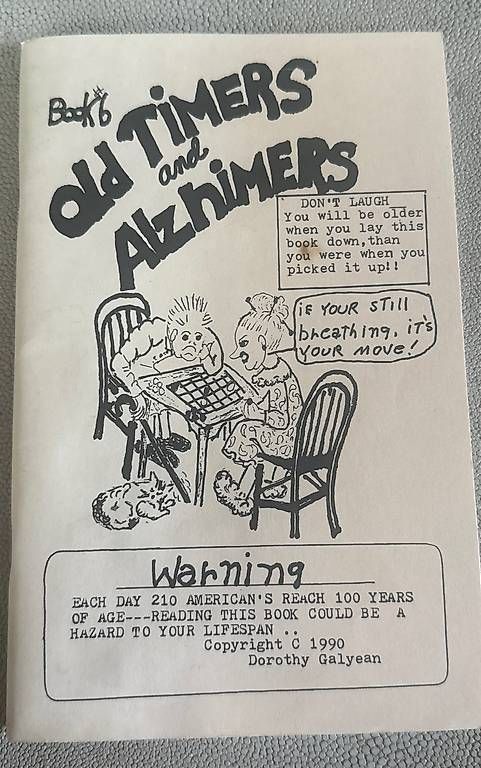 Book #6
Old TIMERS
and
AlzhiMERS
DON'T LAUGH
You will be older
when you lay this
book down,than
you were when you
picked it up!!
iF YOUR STill
bREATHiNG, iT'S
YOUR MOVE!
Warning
EACH DAY 210 AMERICAN'S REACH 100 YEARS
OF AGE---READING THIS BOOK COULD BE A
HAZARD TO YOUR LIFESPAN ..
Copyright C 1990
Dorothy Galyean